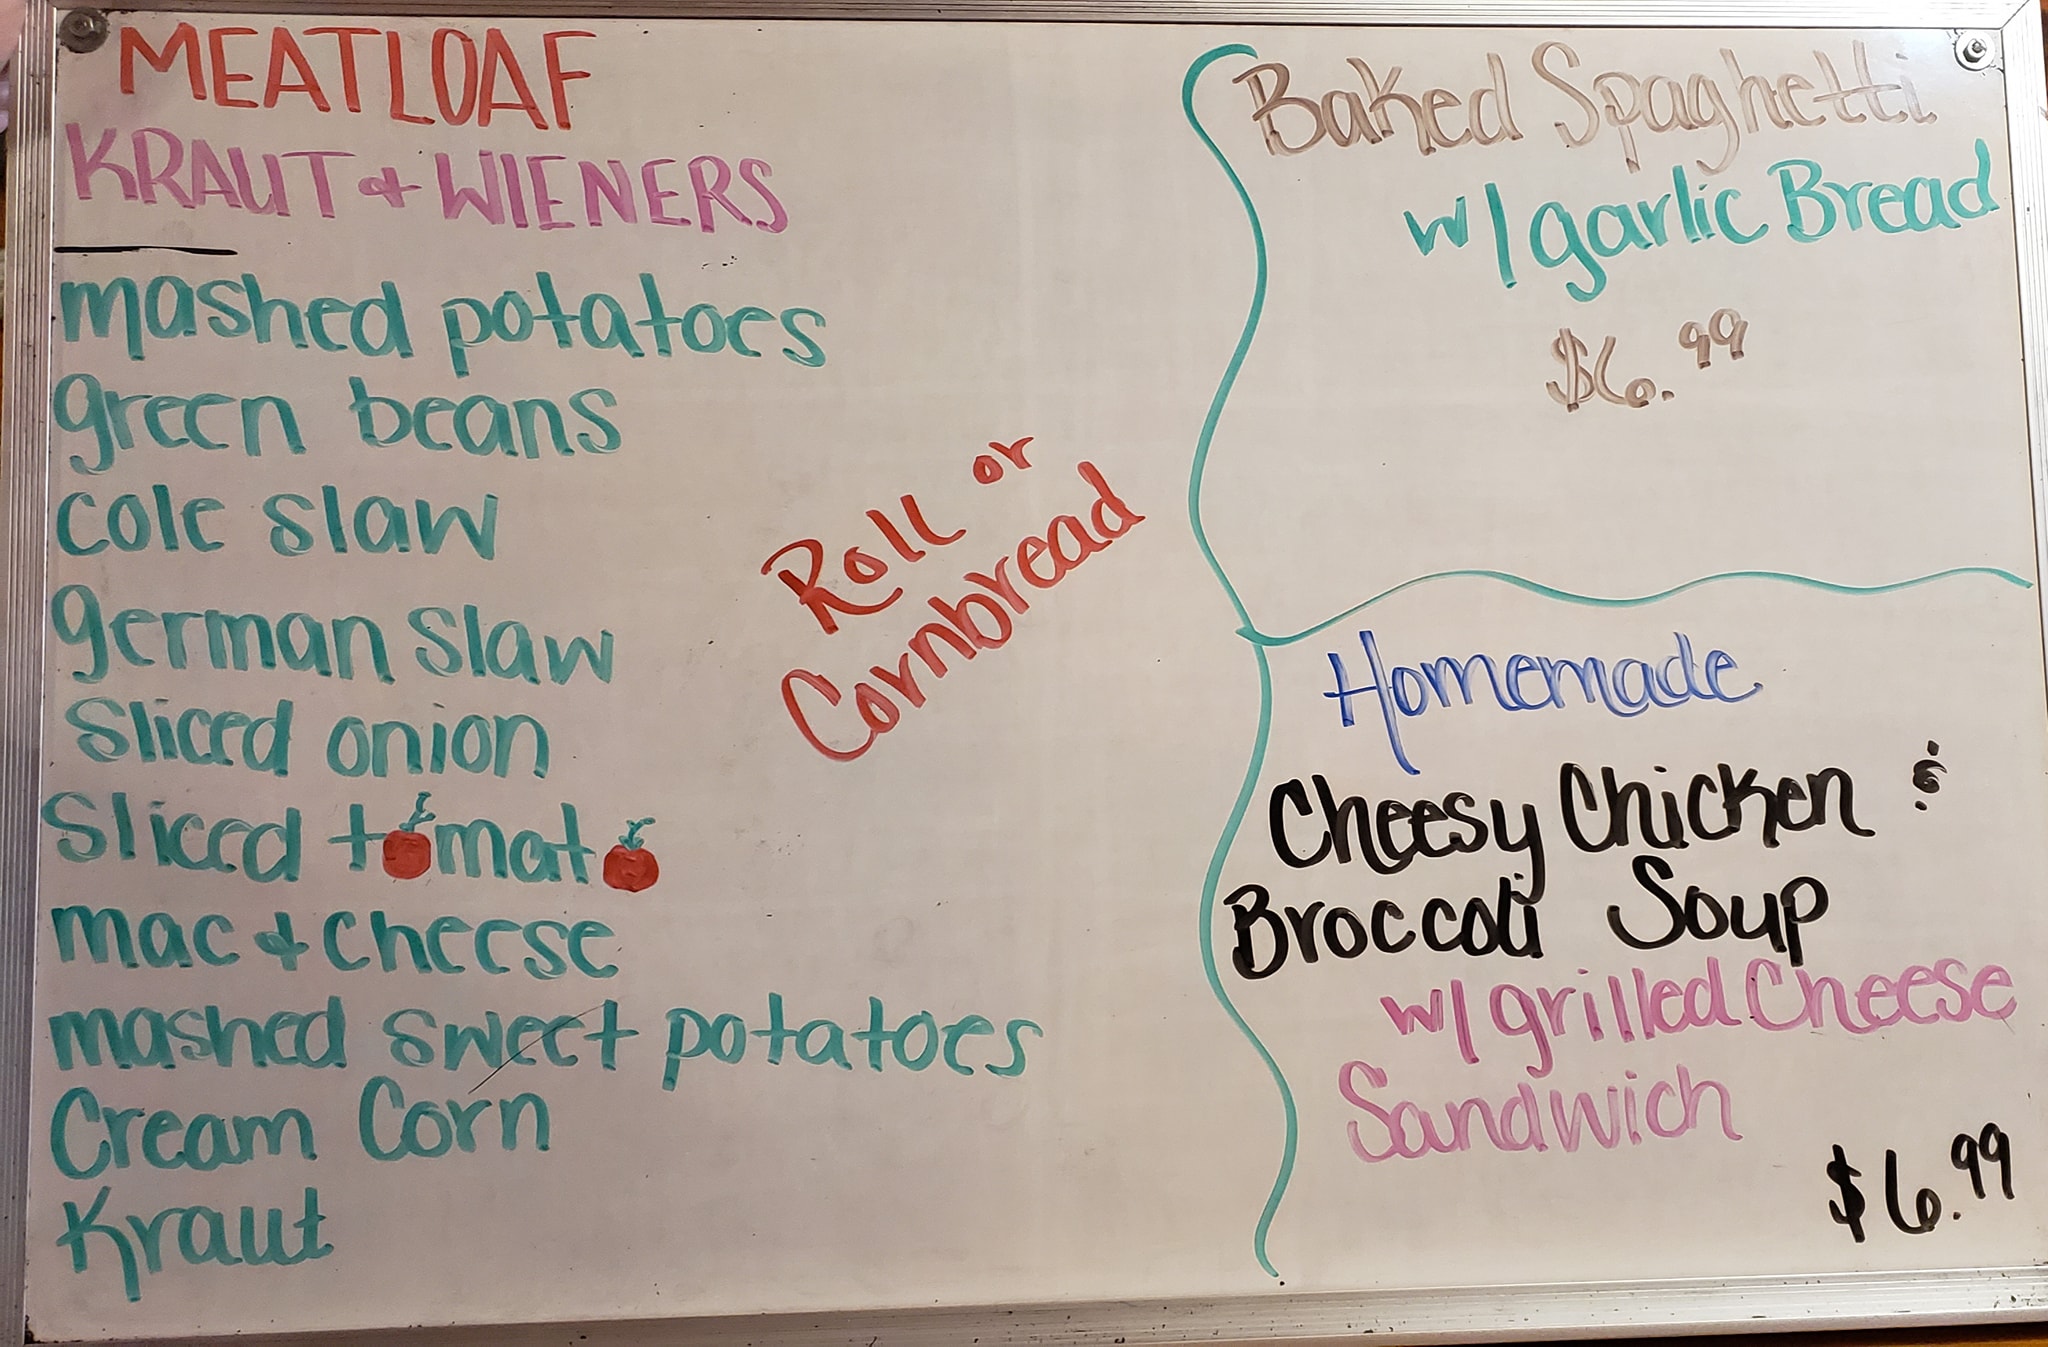 MEATLOAF
KRAUT & WIENERS
mashed potatoes
green beans
cole slaw
german slaw
Sliced onion
Sliced tomato
mac & cheese
mashed sweet potatoes
Cream Corn
Kraut
Roll or
Cornbread
Baked Spaghetti
w/ garlic Bread
$6.99
Homemade
Cheesy Chicken &
Broccoli Soup
w/ grilled Cheese
Sandwich
$6.99